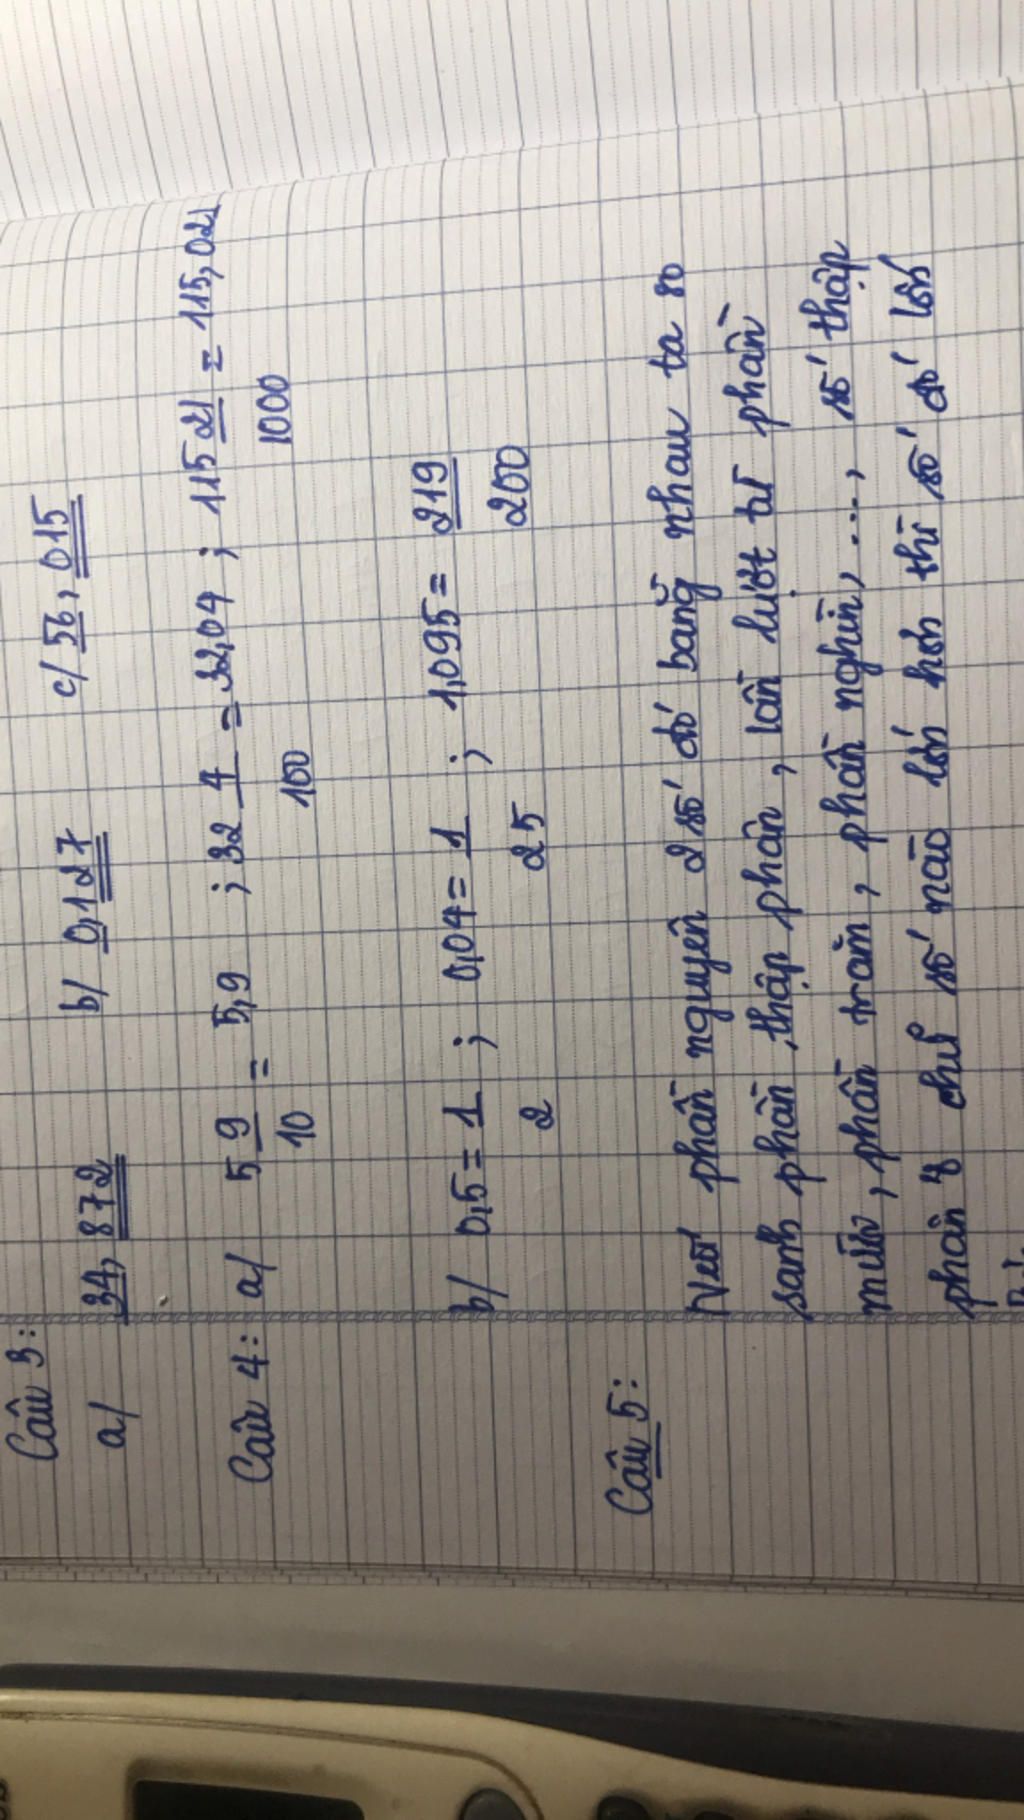 Câu 3:
a/ 34,872 b/ 0,127 c/ 56,015
Câu 4: a/ 5 9/10 = 5,9 ; 32 4/100 = 32,04 ; 115 21/1000 = 115,021
b/ 0,5 = 1/2 ; 0,04 = 1/25 ; 1,095 = 219/200
Câu 5:
Nếu phần nguyên 2 số đó bằng nhau ta so
sánh phần thập phân, lần lượt từ phần
mười, phần trăm, phần nghìn, ..., số thập
phân chữ số nào lớn hơn thì số đó lớn